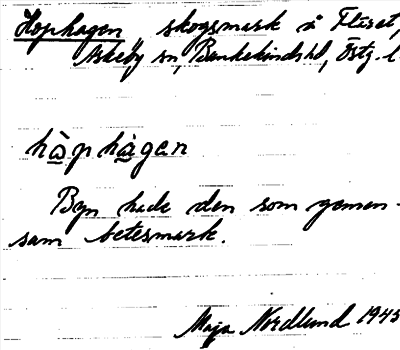 Hophagen, skogsmark å Fläret,
Askeby sn, Bankekinds hd, Östg. l.
hòphàgen
Byn hade den som gemen-
sam betesmark.
Maja Nordlund 1945